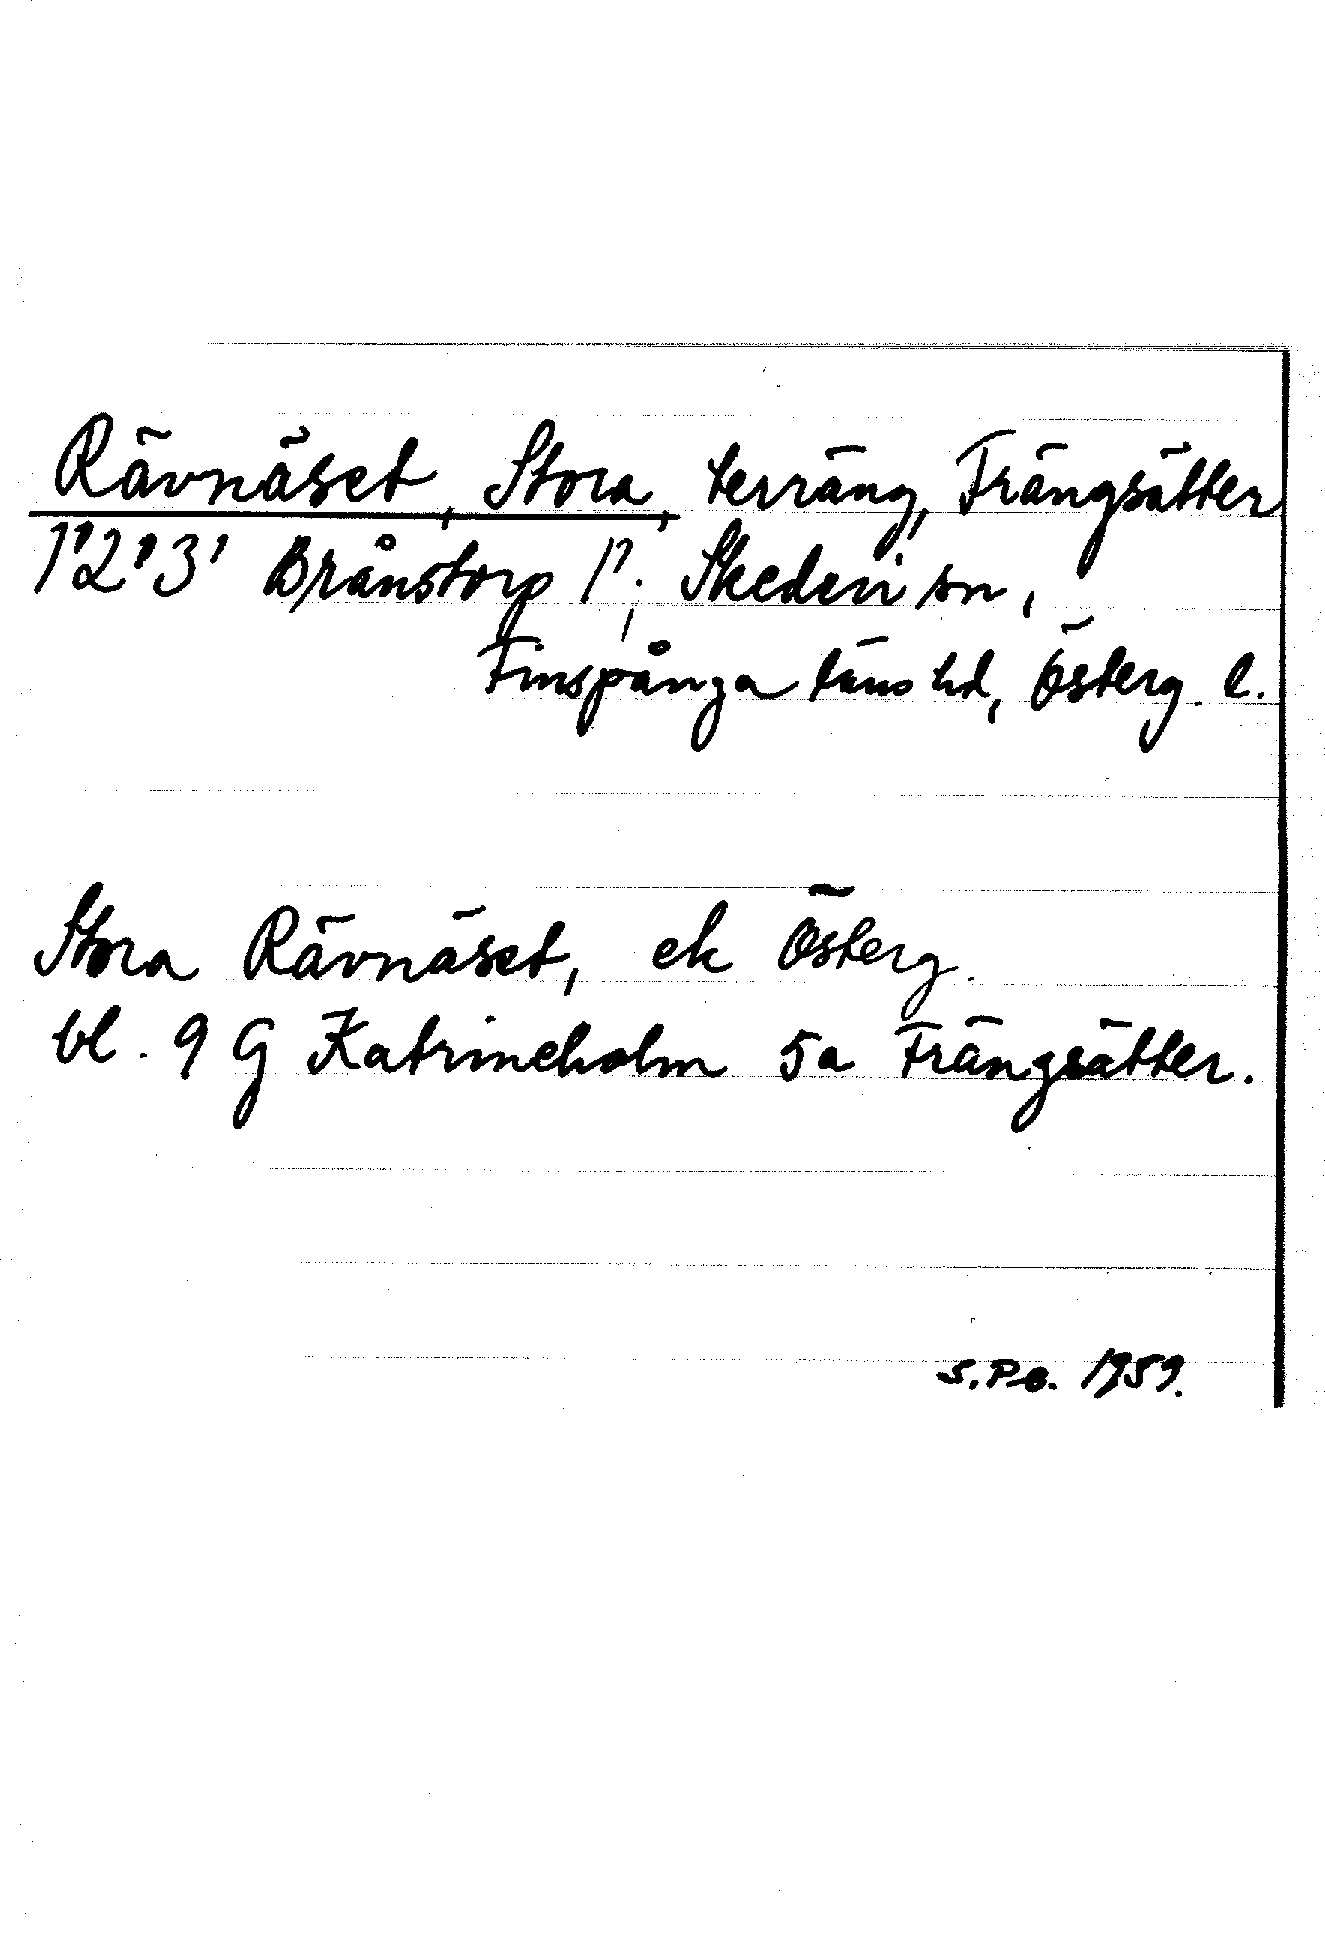 Rävnäset, Stora, terräng, Frängsätter
1² 2² 3¹ Brånstorp 1²; Skedevi sn,
Finspånga läns hd, Österg. l.
Stora Rävnäset, ek Österg.
bl. 9 G Katrineholm 5a Frängsätter.
S.P-B. 1959.